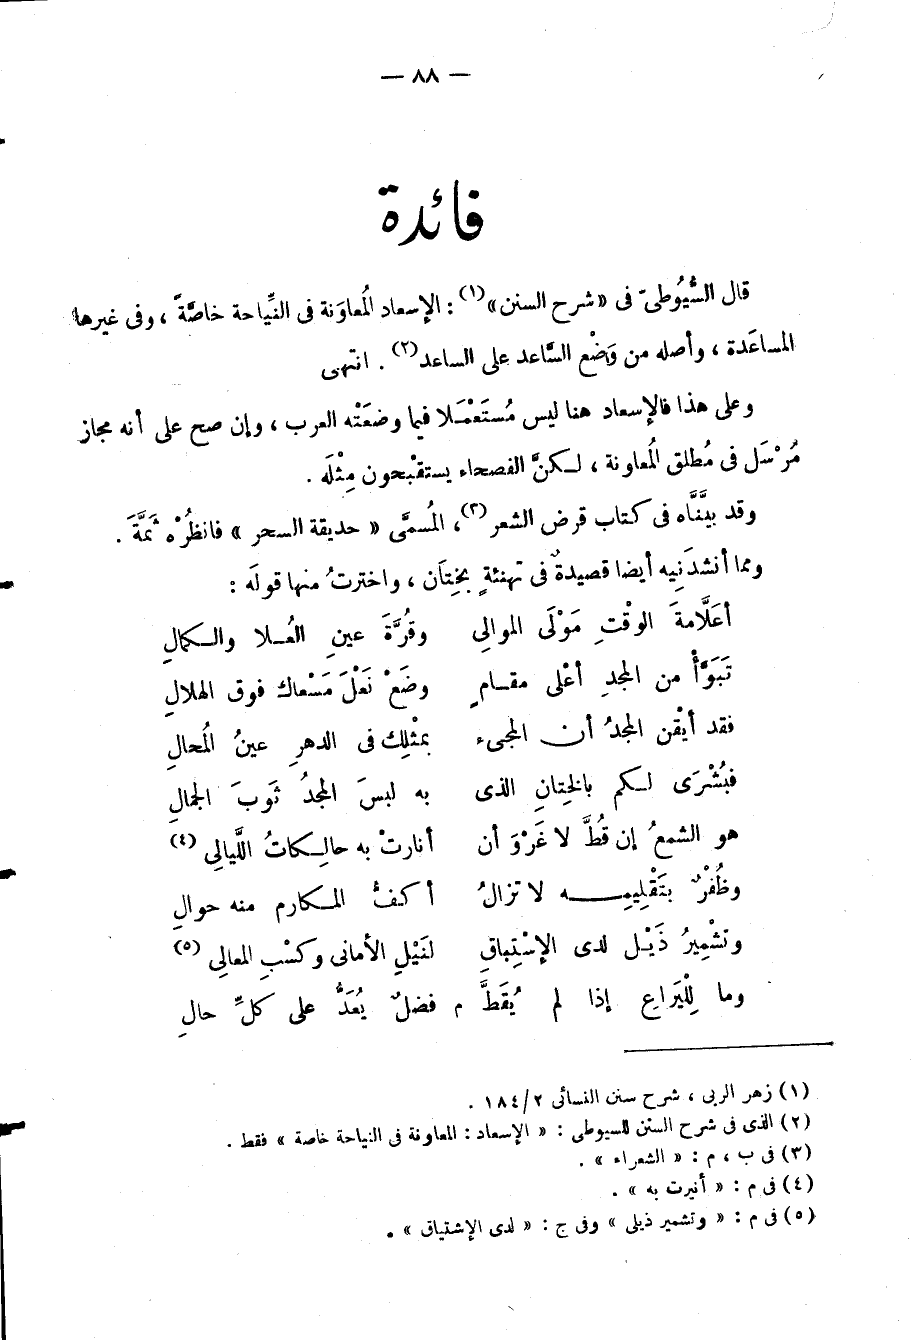 — ٨٨ —
فائدة
قال السُّيُوطىّ فى «شرح السنن»(١) : الإسعاد المُعاوَنة فى النِّياحة خاصَّةً ، وفى غيرها
المساعَدة ، وأصله من وَضْع السَّاعد على الساعد(٢) . انتهى
وعلى هذا فالإسعاد هنا ليس مُستَعْمَلا فيما وضعَتْه العرب ، وإن صح على أنه مجاز
مُرْسَل فى مُطلق المُعاونة ، لكنَّ الفصحاء يستقْبحون مِثْلَه .
وقد بيَّنَّاه فى كتاب قرض الشعر(٣)، المُسمَّى « حديقة السحر » فانظُرْه ثَمَّةَ .
ومما أنشدَنِيه أيضا قصيدةٌ فى تهنئةٍ بخِتَان ، واخترتُ منها قولَه :
أعَلَّامةَ الوقْتِ مَوْلَى الموالِى وقُرَّةَ عينِ العُلا والكمالِ
تَبَوَّأْ من المجدِ أعْلى مقامٍ وضَعْ نَعْلَ مَسْعاك فوق الهلالِ
فقد أيْقن المجدُ أن المجىء بمثْلِك فى الدهرِ عينُ المُحالِ
فبُشْرَى لكم بالخِتانِ الذى به لبسَ المجدُ ثَوبَ الجمالِ
هو الشمعُ إن قُطَّ لا غَرْوَ أن أنارتْ به حالِكاتُ اللَّيالِى (٤)
وظُفْرٌ بتَقْلِيمِه لا تزالُ أكفُّ المكارم منه حوالِ
وتشْمِيرُ ذَيْل لدى الإسْتِباقِ لنَيْلِ الأمانى وكسْبِ المعالِى (٥)
وما لِلْيَراعِ إذا لم يُقَطَّ م فضلٌ يُعَدُّ على كلِّ حالِ
(١) زهر الربى ، شرح سنن النسائى ١٨٤/٢ .
(٢) الذى فى شرح السنن للسيوطى : « الإسعاد : المعاونة فى النياحة خاصة » فقط .
(٣) فى ب ، م : « الشعراء » .
(٤) فى م : « أنيرت به » .
(٥) فى م : « وتشمير ذيلى » وفى ج : « لدى الإشتياق » .